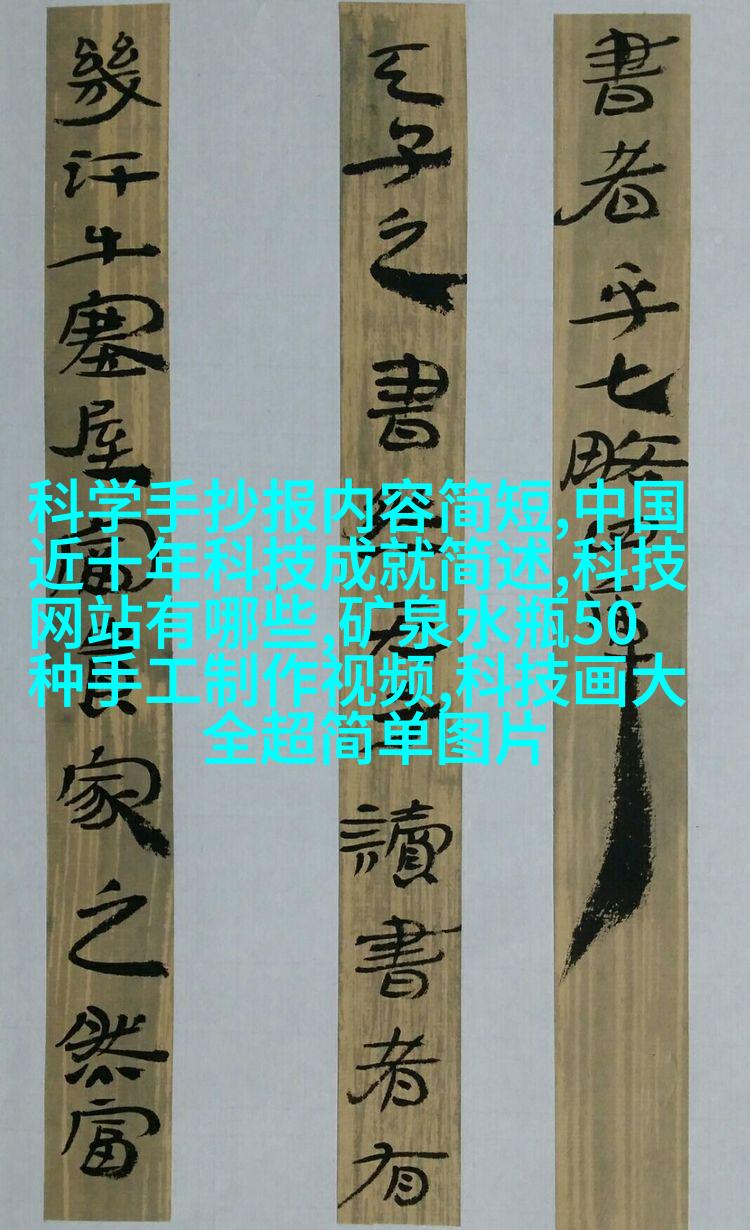 書者乎七略四庫
天子之書然天子讀書者有
幾汗牛塞屋富貴家之然富
科学手抄报内容简短,中国
近十年科技成就简述,科技
网站有哪些,矿泉水瓶50
种手工制作视频,科技画大
全超简单图片